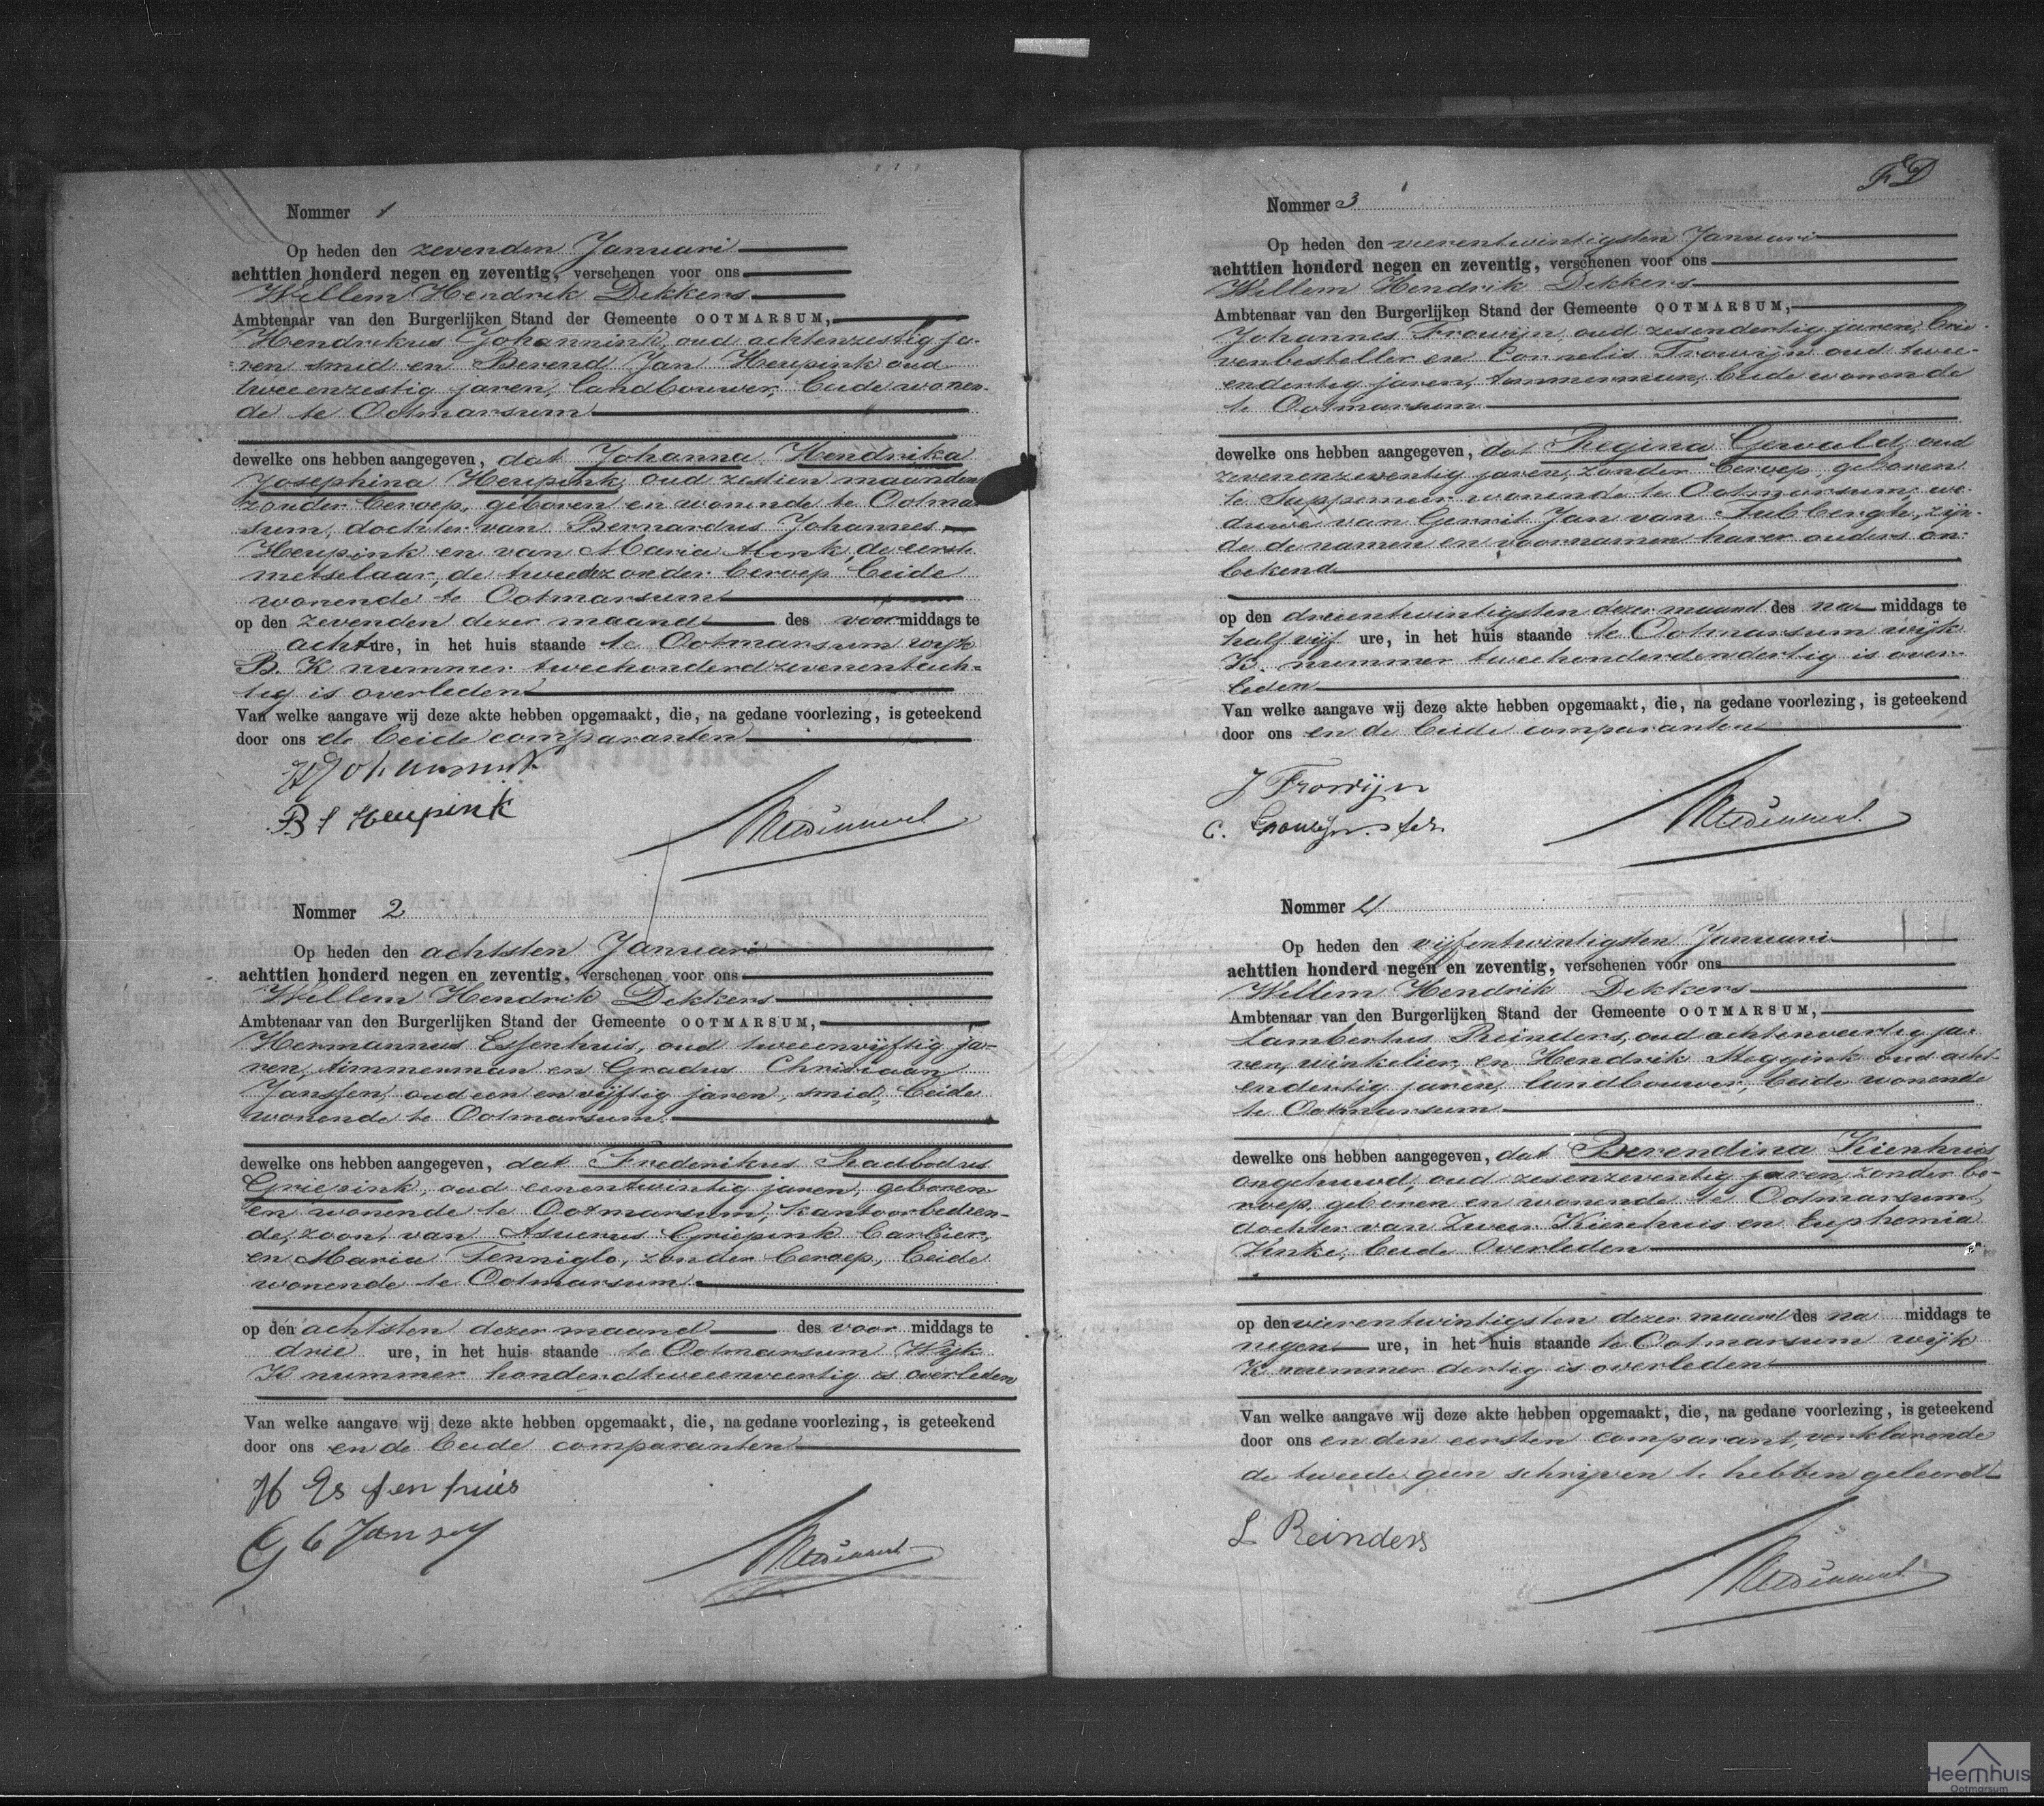 Nommer 1
Op heden den zevenden Januari
achttien honderd negen en zeventig, verschenen voor ons
Willem Hendrik Dekkers
Ambtenaar van den Burgerlijken Stand der Gemeente OOTMARSUM,
Hendrikus Johannink, oud achtenzestig ja-
ren smid en Berend Jan Heupink oud
tweeenzestig jaren, landbouwer, beide wonen-
de te Ootmarsum
dewelke ons hebben aangegeven, dat Johanna Hendrika
Josephina Heupink, oud zestien maanden
zonder beroep, geboren en wonende te Ootmar
sum, dochter van Bernardus Johannes
Heupink en van Maria Alink, de eerste
metselaar, de tweede zonder beroep beide
wonende te Ootmarsum
op den zevenden dezer maand des voormiddags te
acht ure, in het huis staande te Ootmarsum wijk
B. K nummer tweehonderdzevenentach-
tig is overleden
Van welke aangave wij deze akte hebben opgemaakt, die, na gedane voorlezing, is geteekend
door ons de beide comparanten
B J Heupink
Nommer 2
Op heden den achtsten Januari
achttien honderd negen en zeventig, verschenen voor ons
Willem Hendrik Dekkers
Ambtenaar van den Burgerlijken Stand der Gemeente OOTMARSUM,
Hermannus Essenhuis, oud tweeenvijftig ja-
ren, timmerman en Gradus Christiaan
Janssen, oud een en vijftig jaren, smid, beide
wonende te Ootmarsum
dewelke ons hebben aangegeven, dat Frederikus Radbodus
Griepink, oud eenentwintig jaren, geboren
en wonende te Ootmarsum, kantoorbedien-
de, zoon, van Asuerus Griepink barbier,
en Maria Tenniglo, zonder beroep, beide
wonende te Ootmarsum
op den achtsten dezer maand des voor middags te
drie ure, in het huis staande te Ootmarsum Wijk
K nummer honderdtweeenveertig is overleden
Van welke aangave wij deze akte hebben opgemaakt, die, na gedane voorlezing, is geteekend
door ons en de beide comparanten
H Essenhuis
G C Jansen
FD
Nommer 3
Op heden den vierentwintigsten Januari
achttien honderd negen en zeventig, verschenen voor ons
Willem Hendrik Dekkers
Ambtenaar van den Burgerlijken Stand der Gemeente OOTMARSUM,
Johannes Frowijn, oud zesendertig jaren, brie
venbesteller en Cornelis Frowijn oud twee-
endertig jaren, timmerman, beide wonende
te Ootmarsum
dewelke ons hebben aangegeven, dat Regina Gervald, oud
zevenenzeventig jaren, zonder beroep, geboren
te Sappemeer wonende te Ootmarsum, we-
duwe van Gerrit Jan van Aubbergh, zijn-
de de namen en voornamen harer ouders on-
bekend
op den drieentwintigsten dezer maand des na middags te
half vijf ure, in het huis staande te Ootmarsum wijk
K. nummer tweehonderdendertig is over-
leden
Van welke aangave wij deze akte hebben opgemaakt, die, na gedane voorlezing, is geteekend
door ons en de beide comparanten
J Frowijn
C. Frowijn
Nommer 4
Op heden den vijfentwintigsten Januari
achttien honderd negen en zeventig, verschenen voor ons
Willem Hendrik Dekkers
Ambtenaar van den Burgerlijken Stand der Gemeente OOTMARSUM,
Lambertus Reinders, oud achtenveertig ja-
ren, winkelier, en Hendrik Meggink oud acht-
endertig jaren, landbouwer, beide wonende
te Ootmarsum
dewelke ons hebben aangegeven, dat Berendina Kienhuis
ongehuwd, oud zesenzeventig jaren, zonder be-
roep, geboren en wonende te Ootmarsum,
dochter van Zweer Kienhuis en Euphemia
Vinke, beide overleden
op den vierentwintigsten dezer maand des na middags te
negen ure, in het huis staande te Ootmarsum wijk
K nummer dertig is overleden
Van welke aangave wij deze akte hebben opgemaakt, die, na gedane voorlezing, is geteekend
door ons en den eersten comparant, verklarende
de tweede geen schrijven te hebben geleerd
L Reinders
Heemhuis
Ootmarsum